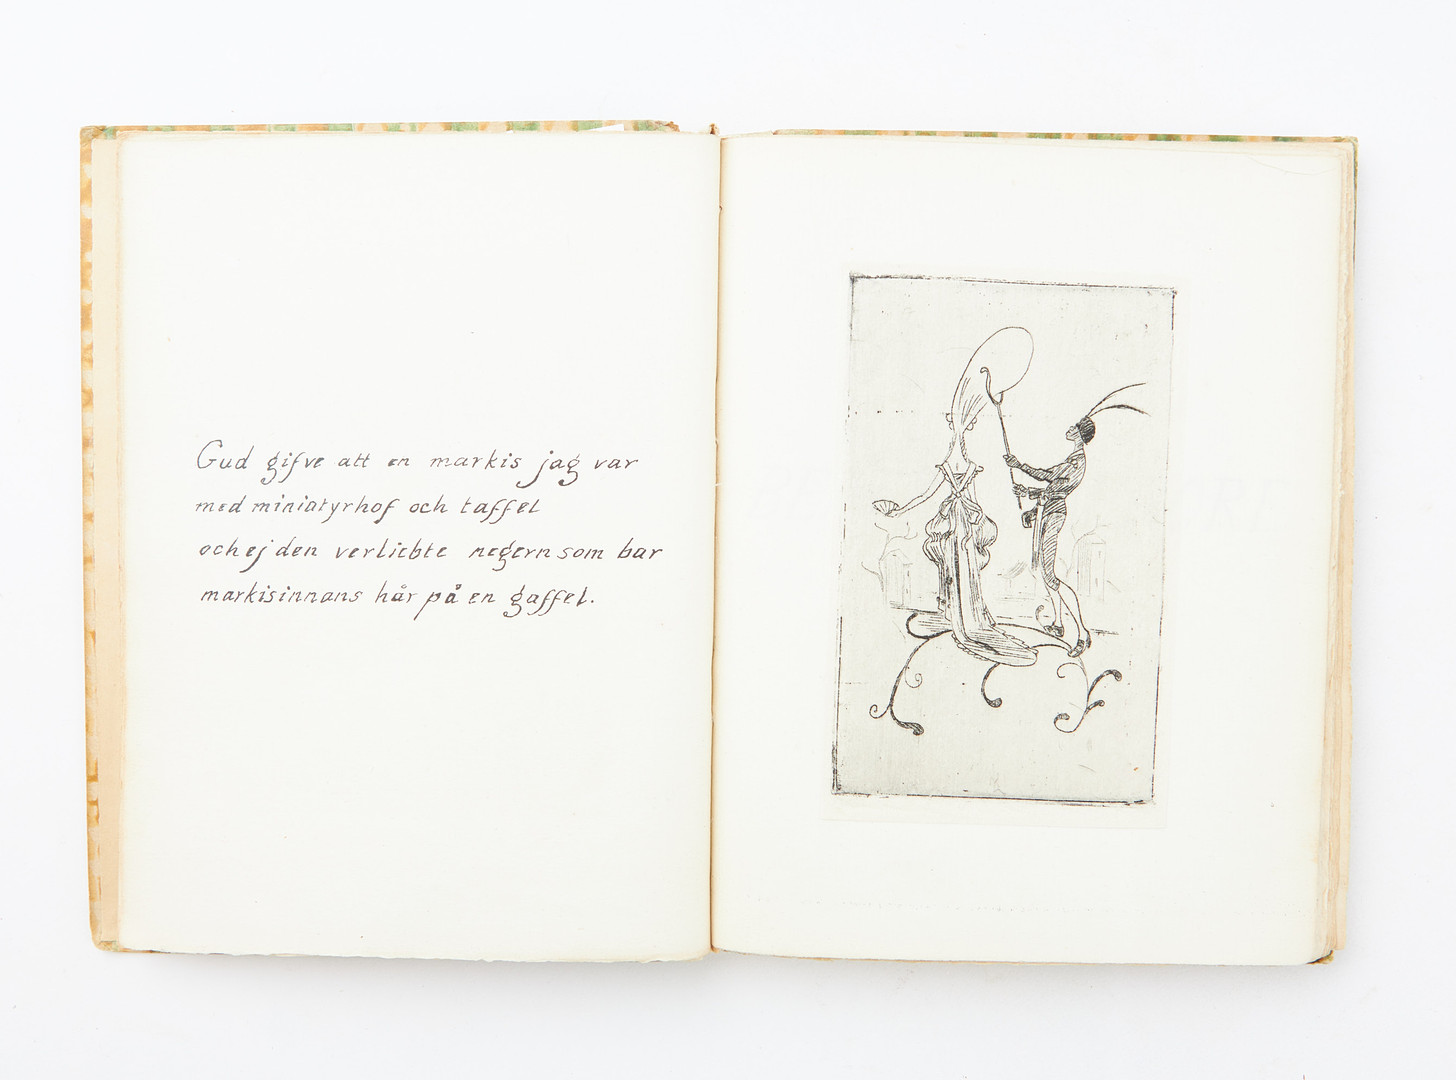 Gud gifve att en markis jag var
med miniatyrhof och taffel
och ej den verliebte negern som bar
markisinnans hår på en gaffel.